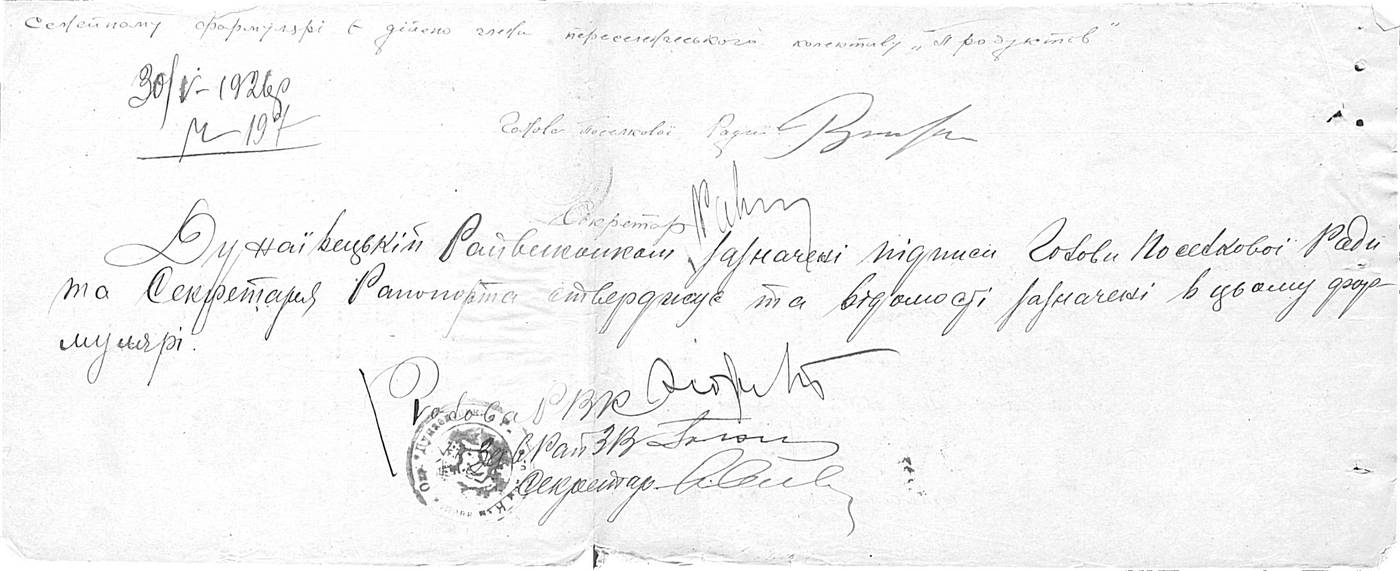 Семейному формулярі є дійсно член переселенческого колективу „Продуктов"
30/V-1926р
№ 197
Голова Поселкової Ради
Секретар
Дунаївецькій Райвиконком зазначені підписи Голови Поселкової Ради
та Секретаря Рапопорта стверджує та відомості зазначені в цьому фор-
мулярі.
Голова РВК
Зав. РайЗВ
Секретар